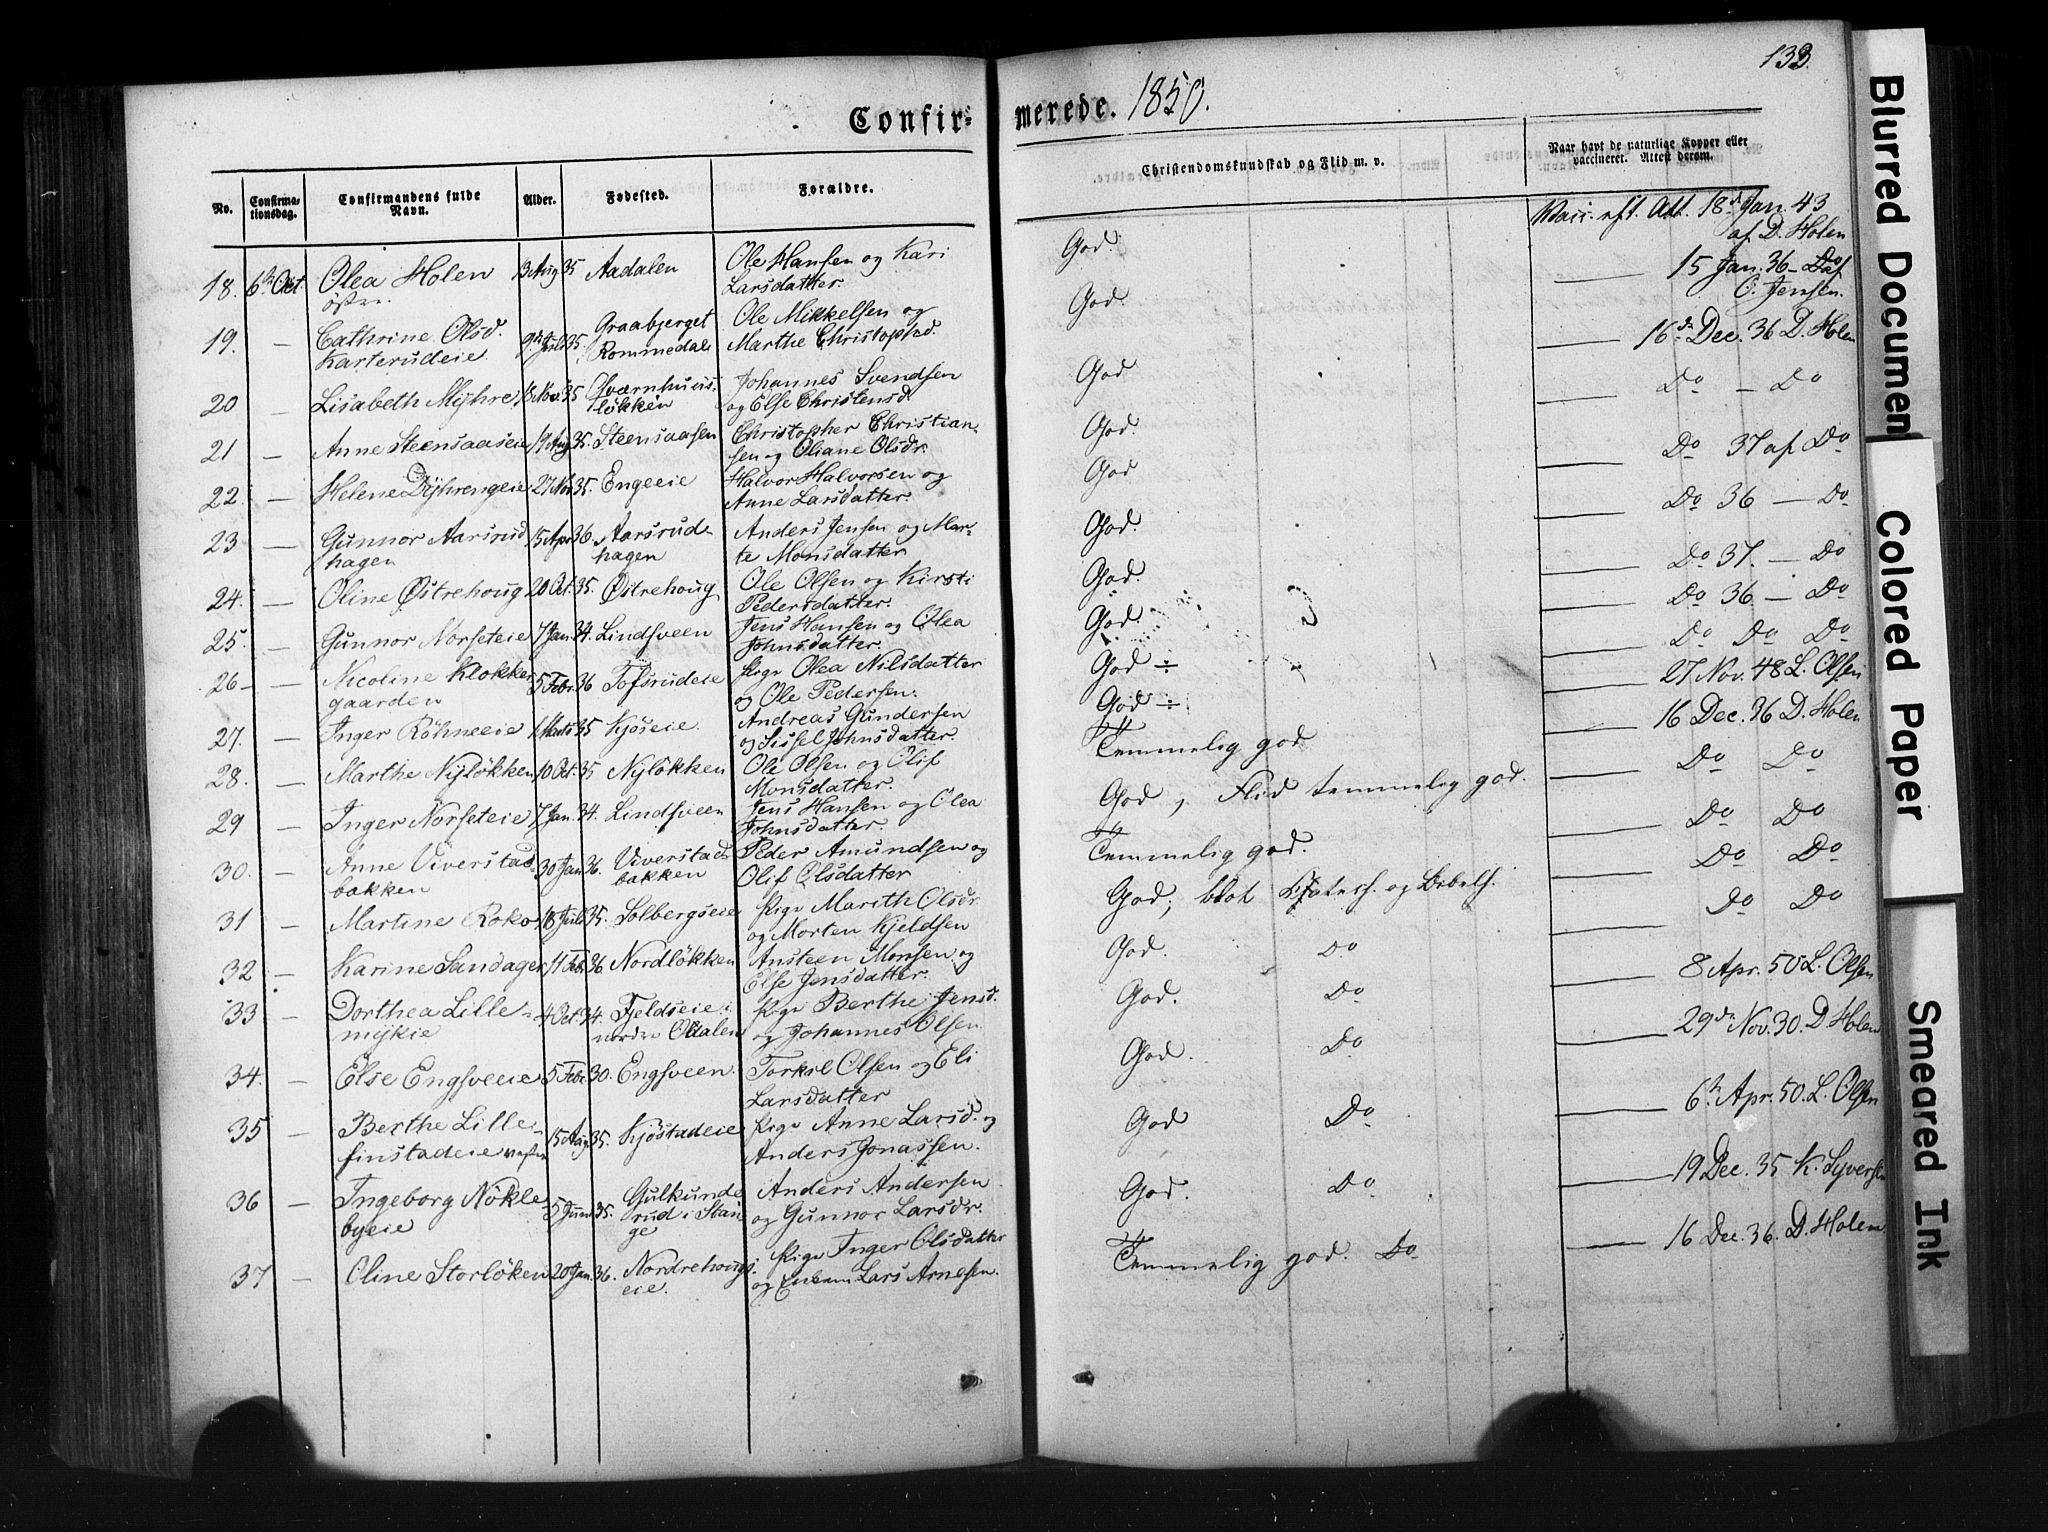 133.
Confir-
merede. 1850.
No.
Confirma-
tionsdag.
Confirmandens fulde
Navn.
Alder.
Fødested.
Forældre.
Christendomskundskab og Flid m. v.
Naar havt de naturlige Kopper eller
vaccineret. Attest derom.
18. 6te Oct Olea Holen 13 Aug 35 Aadalen Ole Hansen og Kari God. Vacc. eft. Att. 18de Jan. 43
østre Larsdatter. af D. Holen
19. — Cathrine Olsd. 9de Juli 35. Graabjerget Ole Mikkelsen og God. — 15 Jan. 36 — Do af
Karterudeie Rommedal Marthe Christophd. C. Jensen.
20 — Lisabeth Myhre 18 Nov. 35 Johannes Svendsen God — 16de Dec. 36 D. Holen
løkken og Else Christensd
21 — Anne Steensaaseie 19 Aug 35. Steensaasen Christopher Christian- God. — Do — Do
sen og Oliane Olsdr.
22. — Helene Dyhrengeie 27 Nov 35. Engeeie Halvor Halvorsen og God — Do 37 af Do
Anne Larsdatter.
23 — Gunnor Aarsrud 15 Apr 36. Aarsrud- Anders Jensen og Mar- God. — Do 36 — Do
hagen hagen te Monsdatter
24. — Oline Østrehoug 20 Oct. 35. Østrehoug Ole Olsen og Kirsti God. — Do 37. — Do
Pedersdatter.
25. — Gunnor Norseteie 7 Jan. 34. Lindsveen Jens Hansen og Olea God. — Do 36 — Do
Johnsdatter.
26 — Nicoline Klokker 5 Febr. 36 Tofsrudeie Pige Olea Nilsdatter God ÷ — Do Do Do
gaarden og Ole Pedersen.
27. — Inger Röhneeie 1 Marts 35 Kjøseie. Andreas Gundersen God ÷ — 27 Nov. 48 L. Olsen
og Sissel Johnsdatter.
28. — Marthe Nyløkken 10 Oct. 35 Nyløkken Ole Olsen og Olif Temmelig god — 16 Dec. 36 D. Holen
Monsdatter.
29 — Inger Norseteie 7 Jan. 34. Lindsveen Jens Hansen og Olea God, Flid temmelig god. — Do Do
Johnsdatter.
30. — Anne Uverstad 30 Jan 36. Uverstad- Peder Amundsen og Temmelig god. — Do Do
bakken bakken Olif Olsdatter
31 — Martine Roko 18 Juli 35. Solbergseie Pige Marith Olsdr. God, blot Catech. og Bibelh. — Do Do
og Morten Kjeldsen
32 — Karine Sandager 11 Feb. 36 Nordløkken Ansteen Monsen og God. Do — Do Do
Else Jensdatter.
33 — Dorthea Lille- 4 Oct. 34. Fjeldseie i Pige Berthe Jensd. God. Do — 8 Apr. 50 L. Olsen
mykie nordre Odalen og Johannes Olsen
34. — Else Engsveeie 5 Febr. 30. Engsveen. Torkel Olsen og Eli God. Do — 29de Nov. 30. D Holen
Larsdatter
35 — Berthe Lille- 15 Aug 35. Kjøstadeie Pige Anne Larsd. og God Do — 6te Apr. 50. L. Olsen
finstadeie vestre Anders Jonassen.
36 — Ingeborg Nökle- 5 Juni 35. Gulkunde- Anders Andersen God. Do — 19 Dec. 35 K. Syversen
byeie rud i Stan- og Gunnor Larsdr.
ge
37 — Oline Storløken 20 Jan. 36. Nordrehougs- Pige Inger Olsdatter Temmelig god. Do — 16 Dec. 36. D. Holen
eie. og Enkem Lars Arnesen.
Blurred Document
Colored Paper
Smeared Ink